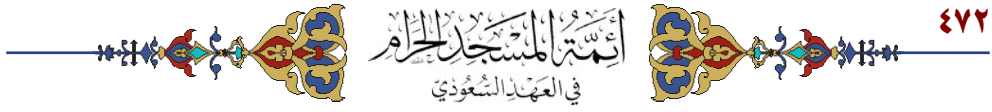 ٤٧٢
أَئِمَّةُ المَسْجِدِ الحَرَامِ
فِي العَهْدِ السُّعُودِيِّ